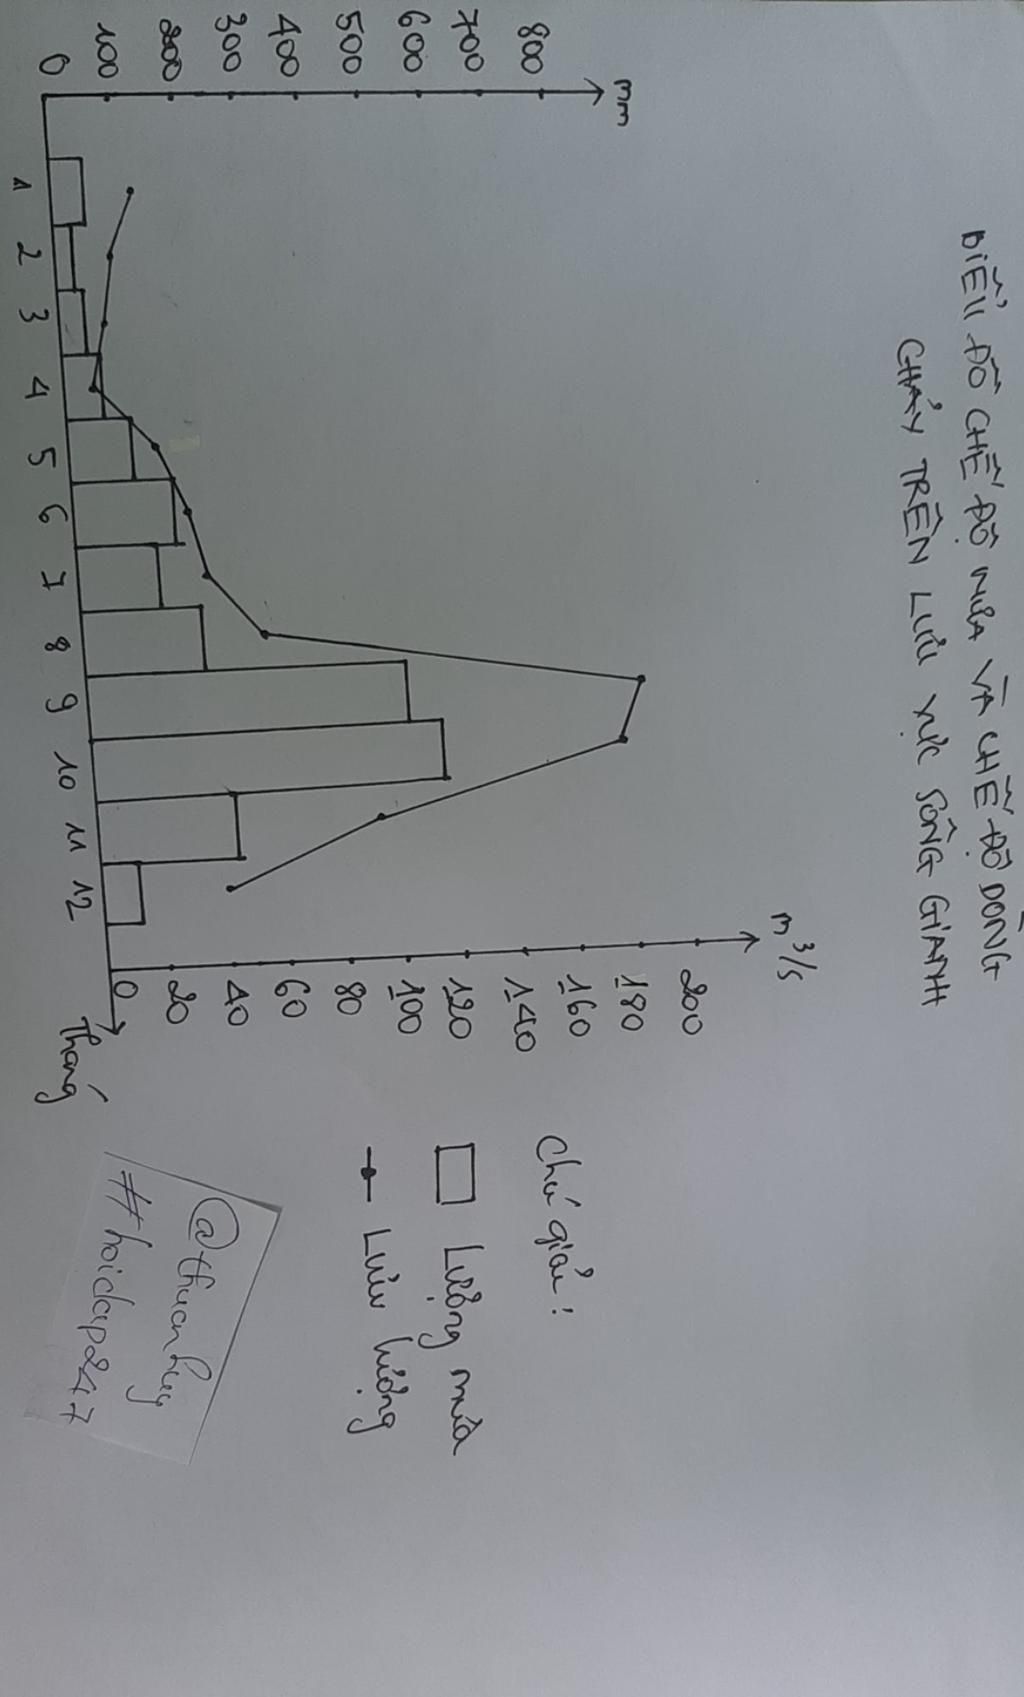 BIỂU ĐỒ CHẾ ĐỘ MƯA VÀ CHẾ ĐỘ DÒNG
CHẢY TRÊN LƯU VỰC SÔNG GIANH
mm
800
700
600
500
400
300
200
100
0
m³/s
200
180
160
140
120
100
80
60
40
20
0
1 2 3 4 5 6 7 8 9 10 11 12
Tháng
Chú giải:
Lượng mưa
Lưu lượng
@thuanhuy
#hoidap247